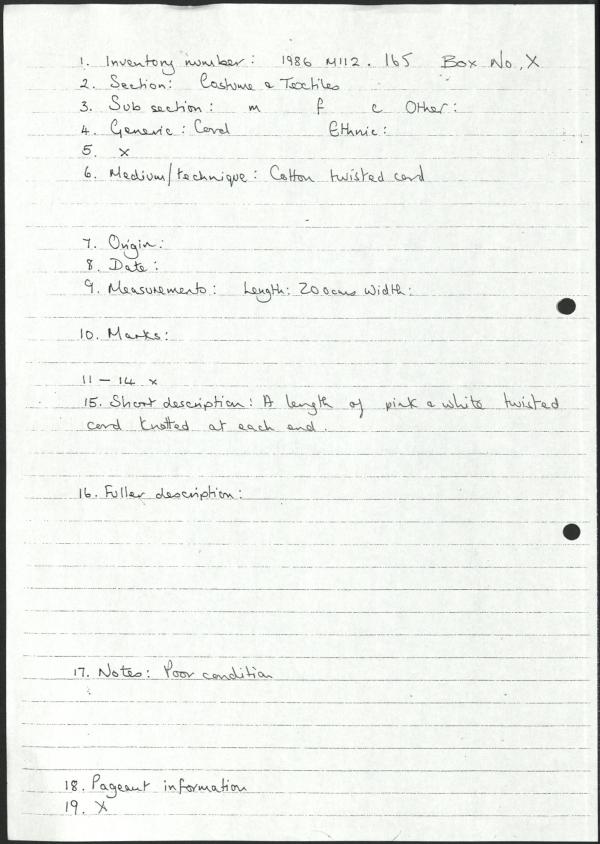 1. Inventory number: 1986 M112.165 Box No. X
2. Section: Costume & Textiles
3. Sub section: m f c Other:
4. Generic: Cord Ethnic:
5. x
6. Medium/technique: Cotton twisted cord
7. Origin:
8. Date:
9. Measurements: Length: 200cms Width:
10. Marks:
11 – 14 x
15. Short description: A length of pink & white twisted
cord knotted at each end.
16. Fuller description:
17. Notes: Poor condition
18. Pageant information
19. X